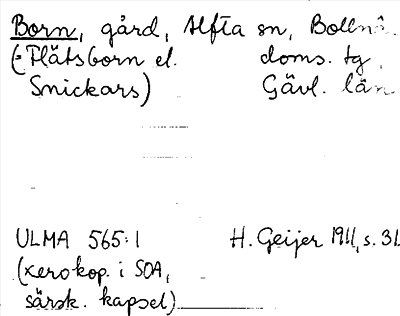 Born, gård, Alfta sn, Bolln.
(= Flätsborn el. doms. tg,
Snickars) Gävl. län
ULMA 565:1 H. Geijer 1911, s. 31
(xerokop. i SOA,
särsk. kapsel)